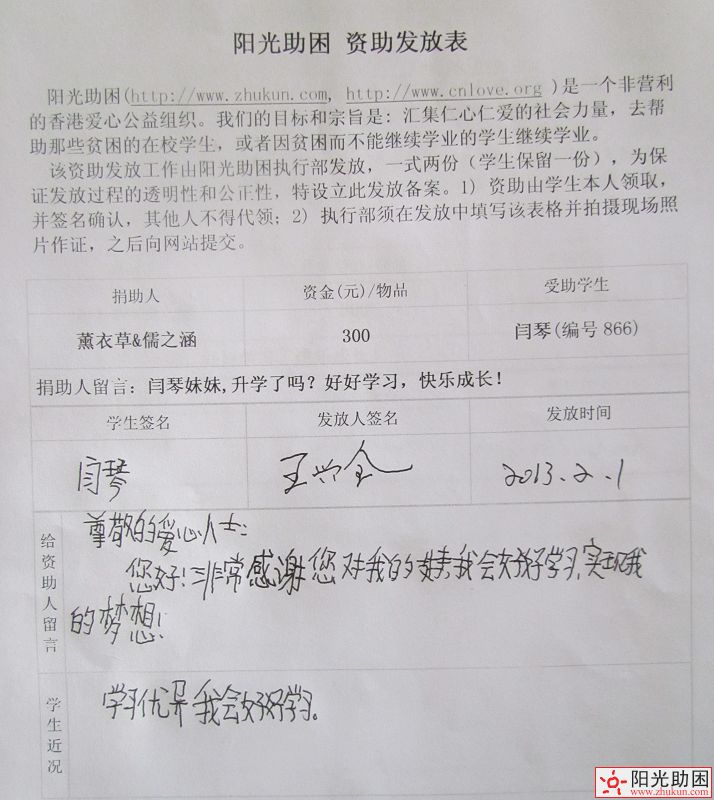 阳光助困 资助发放表
阳光助困(http://www.zhukun.com, http://www.cnlove.org )是一个非营利
的香港爱心公益组织。我们的目标和宗旨是: 汇集仁心仁爱的社会力量，去帮
助那些贫困的在校学生，或者因贫困而不能继续学业的学生继续学业。
该资助发放工作由阳光助困执行部发放，一式两份（学生保留一份），为保
证发放过程的透明性和公正性，特设立此发放备案。1) 资助由学生本人领取，
并签名确认，其他人不得代领；2) 执行部须在发放中填写该表格并拍摄现场照
片作证，之后向网站提交。
捐助人 资金(元)/物品 受助学生
薰衣草&儒之涵 300 闫琴(编号 866)
捐助人留言：闫琴妹妹,升学了吗？好好学习，快乐成长！
学生签名 发放人签名 发放时间
闫琴 王兴全 2013.2.1
给资助人留言
尊敬的爱心人士：
您好！非常感谢您对我的支持，我会好好学习，实现我
的梦想！
学生近况
学习优异我会好好学习。
阳光助困
www.zhukun.com